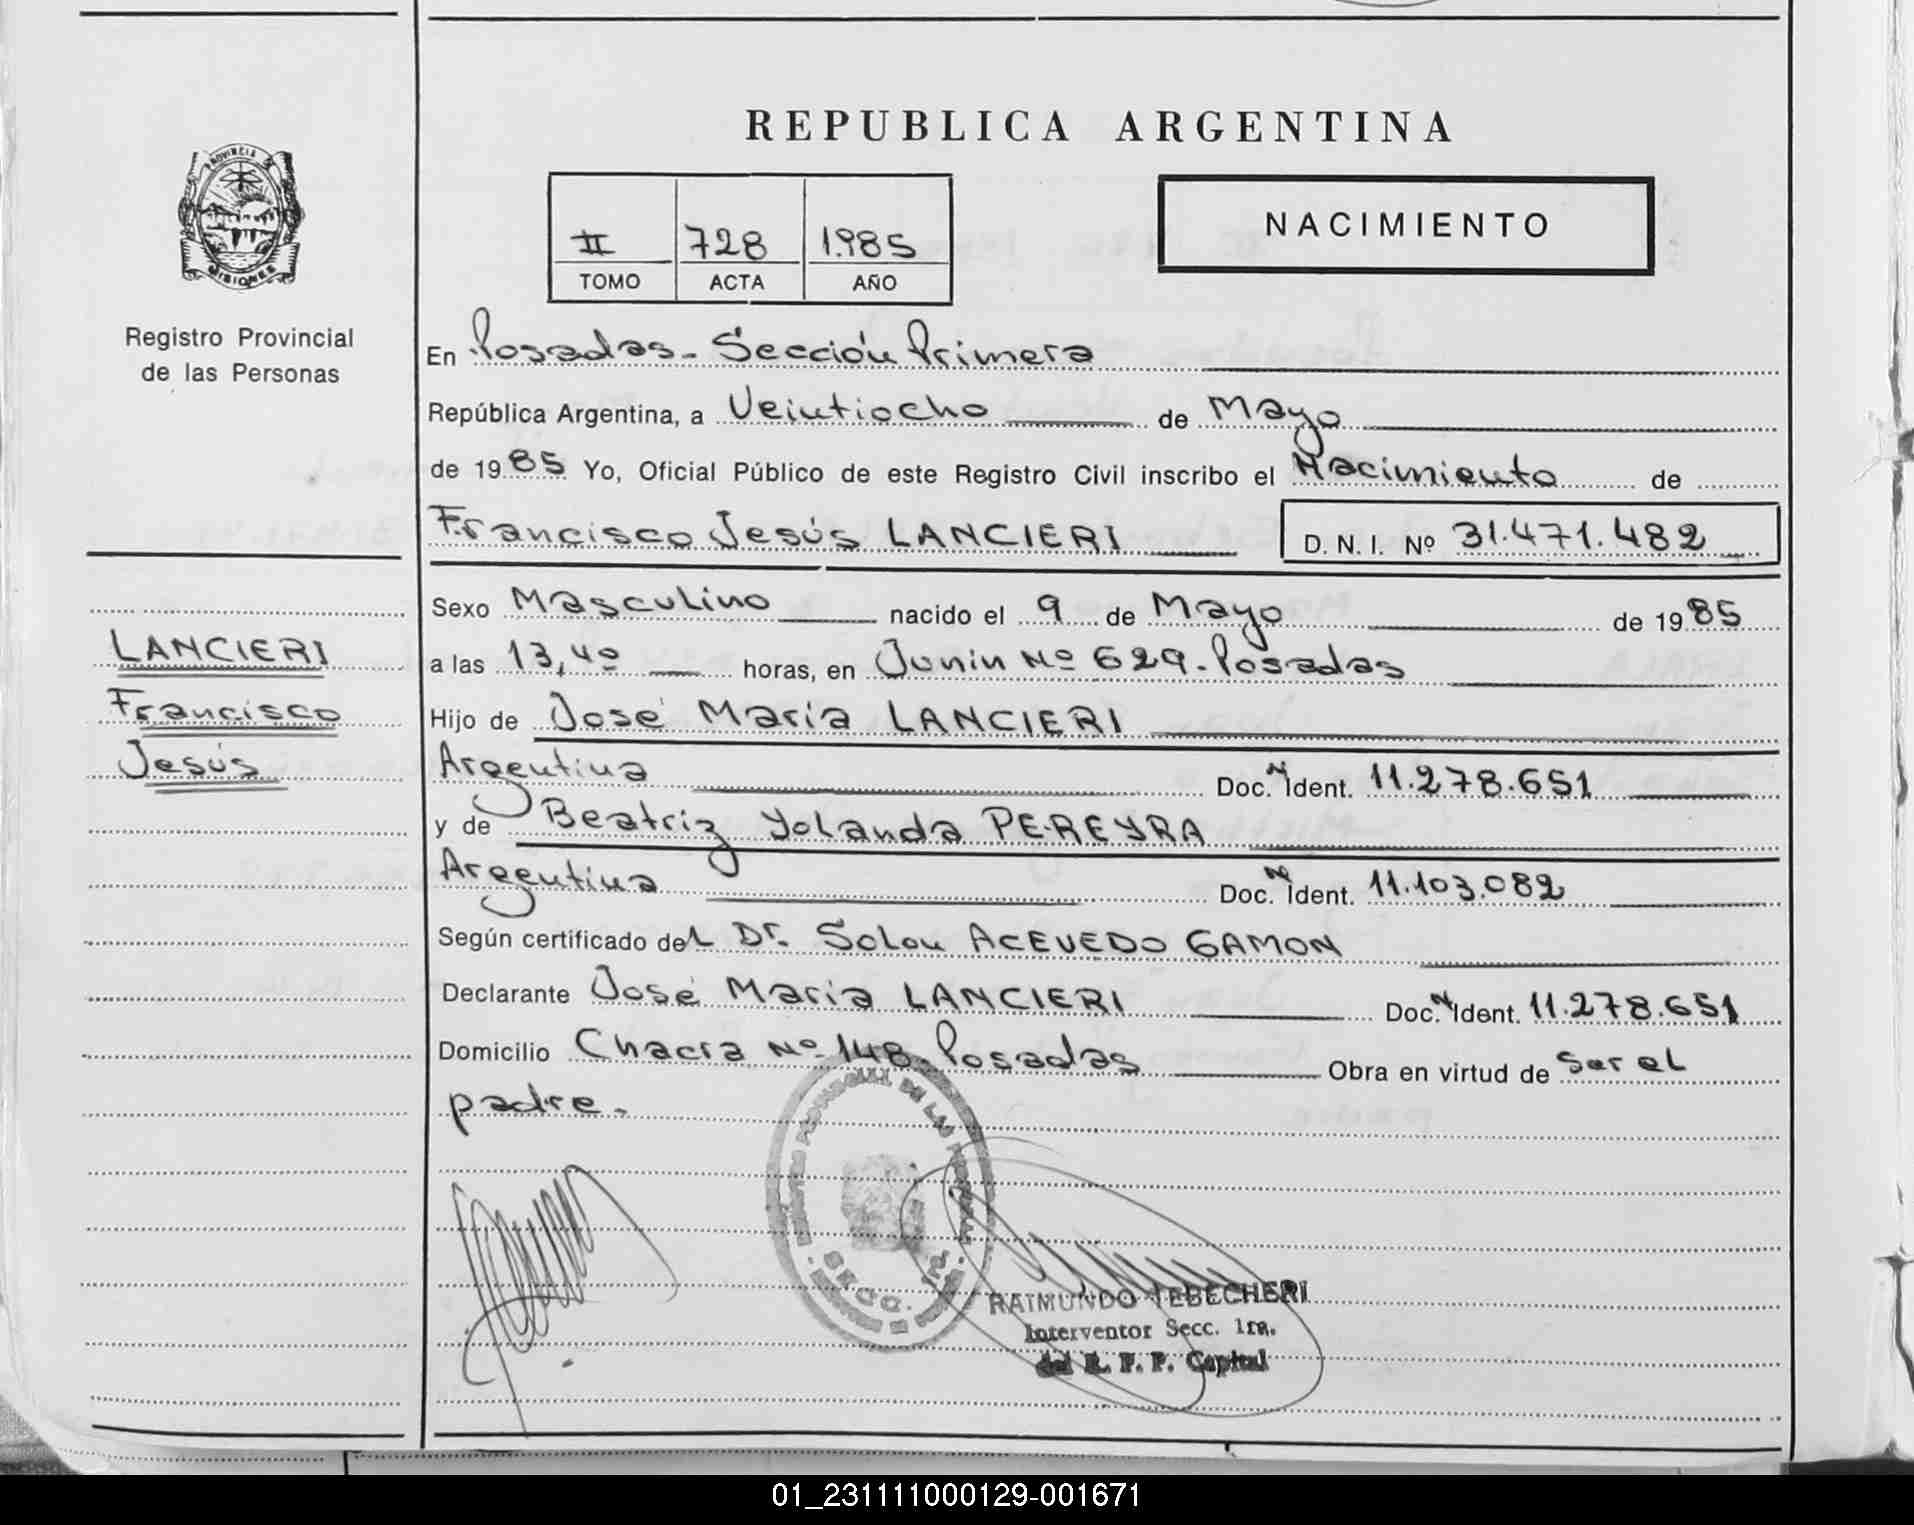 REPUBLICA ARGENTINA
PROVINCIA DE
MISIONES
Registro Provincial
de las Personas
II 728 1.985
TOMO ACTA AÑO
NACIMIENTO
En Posadas - Sección Primera
República Argentina, a Veintiocho de Mayo
de 1985 Yo, Oficial Público de este Registro Civil inscribo el Nacimiento de
Francisco Jesús LANCIERI D. N. I. Nº 31.471.482
Sexo Masculino nacido el 9 de Mayo de 1985
a las 13,40 horas, en Junín Nº 629 - Posadas
Hijo de José María LANCIERI
Argentina Doc. N Ident. 11.278.651
y de Beatriz Yolanda PEREYRA
Argentina Doc. Nº Ident. 11.103.082
Según certificado del Dr. Solon ACEVEDO GAMON
Declarante José María LANCIERI Doc. N Ident. 11.278.651
Domicilio Chacra Nº 148 - Posadas Obra en virtud de Ser el
padre.
LANCIERI
Francisco
Jesús
PROVINCIAL DE LAS PERSONAS
SECC. 1ra.
RAIMUNDO TEBECHERI
Interventor Secc. 1ra.
del R. P. P. Capital
01_231111000129-001671